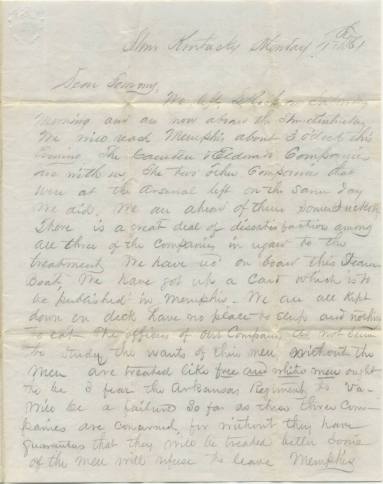 Stmr Kentucky Monday
Dear Tommy,
We left on
Morning and are now aboard the Stmr Kentucky
We will reach Memphis about 3 o'clock this
Evening. The Camden & Eldorado Companies
are with us. The two other Companies that
were at the Arsenal left on the same day
We did. We are ahead of them
There is a great deal of dissatisfaction among
all three of the Companies in regard to the
treatment We have on board this Steam
Boat. We have got up a Card which is to
be published in Memphis. We are all kept
down on deck have no place to sleep and nothing
to eat. The officers of our Company do not seem
to study the wants of their men. Without the
men are treated like free and white men ought
to be I fear the Arkansas Regiment to Va.
will be a failure So far as these three Com-
panies are concerned, for without they have
guarantees that they will be treated better Some
of the men will refuse to leave Memphis